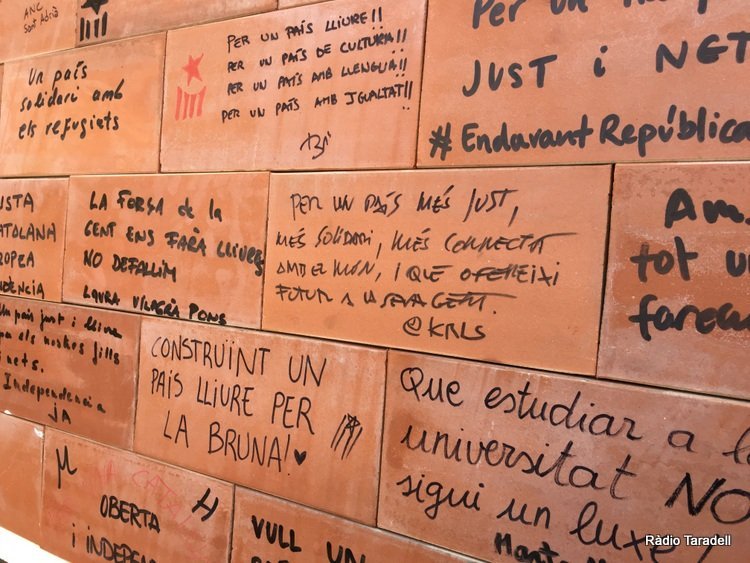 ANC
Sant Adrià
PER UN PAÍS LLIURE!!
PER UN PAÍS DE CULTURA!!
PER UN PAÍS AMB LLENGUA!!
PER UN PAÍS AMB IGUALTAT!!
Per un
JUST i NET
#EndavantRepública
Un país
solidari amb
els refugiets
USTA
ATALANA
ROPEA
DÈNCIA
LA FORÇA de la
GENT ENS FARÀ LLIURES
NO DEFALLIM
LAURA VILAGRÀ PONS
PER UN PAÍS MÉS JUST,
MÉS SOLIDARI, MÉS CONNECTAT
AMB EL MÓN, I QUE OFEREIXI
FUTUR A LA SEVA GENT.
@KRLS
Am
tot u
farem
Un país just i lliure
pa els nostres fills
i nets.
Independencia
JA
CONSTRUÏNT UN
PAÍS LLIURE PER
LA BRUNA!
Que estudiar a la
universitat NO
sigui un luxe!
OBERTA
i INDEPEN
VULL UN
Ràdio Taradell